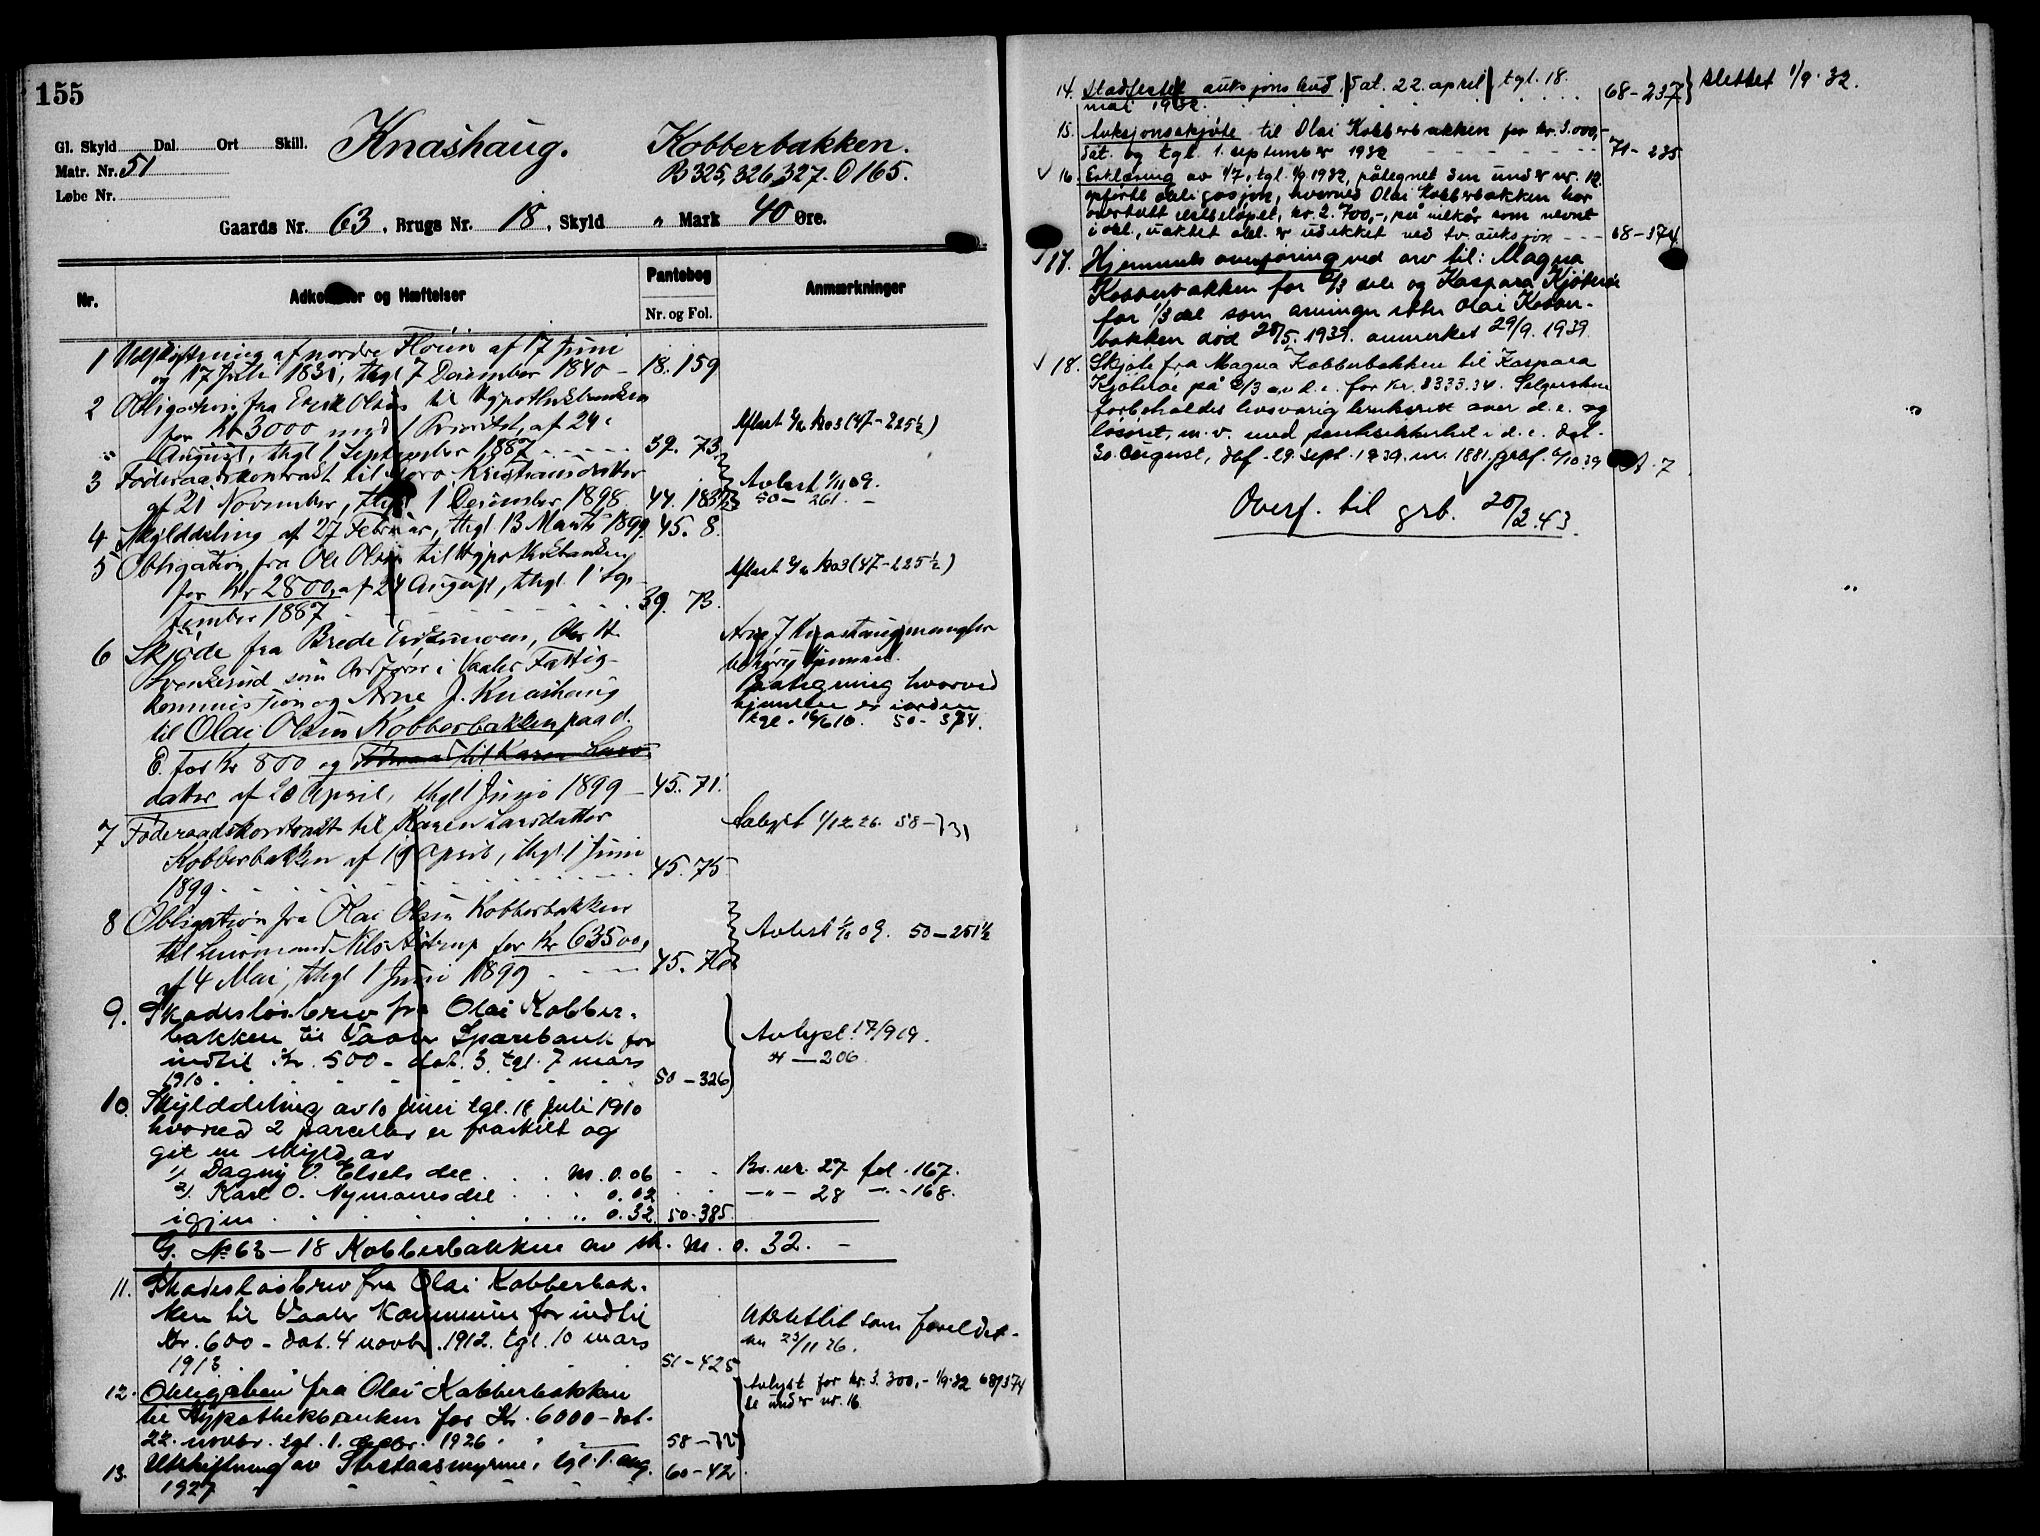 155
Gl. Skyld Dal. Ort Skill. Knashaug. Kobberbakken.
Matr. Nr. 51 B 325, 326, 327. D 165.
Løbe Nr.
Gaards Nr. 63, Brugs Nr. 18, Skyld " Mark 40 Øre.
Nr. Adkomster og Hæftelser Pantebog Anmærkninger
Nr. og Fol.
1 Udskiftning af nordre Floen af 17 Juni
og 17 Juli 1831, thgl 7 December 1840 - 18. 159
2 Obligation fra Erik Olsen til Hypothekbanken
for Kr 3000 med 1 Prioritet, af 24 Aflæst 1903 (47-225½)
August, thgl 1 September 1887 39. 73.
3 Føderaadskontrakt til Kristiansdatter Avlæst 1/11 09.
af 21 November, thgl 1 December 1898 44. 183 50 - 261.
4 Skylddeling af 27 Februar, thgl 13 Marts 1899 45. 8.
5 Obligation fra Ole Olsen til Hypothekbanken
for Kr 2800, af 24 August, thgl. 1 Sep- Aflæst 1903 (47-225½)
tember 1887 39. 73.
6 Skjøde fra Brede Eriksmoen, Ole H. Arne J Knashaug mangler
som Ordfører i Vaaler Fattig- behørig hjemmel.
kommission og Arne J. Knashaug Paategning hvorved
til Olai Olsen Kobberbakken paa d. hjemmelen er i orden
E. for Kr 800 og Føderaad til Karen Lars- tgl. 16/6 10. 50 - 374.
datter af 20 April, thgl 1 Juni 1899 - 45. 71.
7 Føderaadskontrakt til Karen Larsdatter Avlyst 1/12 26. 58-731
Kobberbakken af 19 April, thgl 1 Juni 45. 75
1899.
8 Obligation fra Olai Olsen Kobberbakken
til Lensmand Nils Astrup for Kr 635 00, Avlæst 09. 50-251½
af 4 Mai, thgl 1 Juni 1899 45. 76
9. Skadesløsbrev fra Olai Kobber-
bakken til Vaaler Sparebank for Avlyst 17/9 19.
indtil Kr. 500 - dat. 3. tgl. 7 mars - 206
1910. 50 - 326
10. Skylddeling av 10 Juni tgl. 18 Juli 1910
hvorved 2 parceller er fraskilt og
git en skyld av
1/. Dagny O. Elsets del M. 0.06 - - Br. nr. 27 fol. 167.
2/. Karl O. Nymoens del 0.02 -"- 28 -"- 168.
igjen " 0.32. 50-385.
G. № 63-18 Kobberbakken av sk. M. 0. 32. -
11. Skadesløsbrev fra Olai Kobberbak-
ken til Vaaler Kommune for indtil Utslettet som foreldet
Kr. 600 - dat. 4 novbr. 1912. tgl. 10 mars 23/11 26.
1913. 51-425
12. Obligation fra Olai Kobberbakken Avlyst for kr. 3.300,- 1/9-32 68/374
til Hypothekbanken for Kr. 6000 - dat. se under nr. 16.
22. novbr. tgl. 1. decbr. 1926
13. Utskiftning av tgl. 1. aug. 60-42.
1927
14. Stadfestet auksjonsbud, dat. 22. april tgl. 18. 68-237 slettet 1/9-32.
mai 1932.
15. Auksjonsskjøte til Olai Kobberbakken for kr. 3.000,-
dat. og tgl. 1. september 1932 71-235
16. Erklæring av 1/7, tgl. 1/9 1932, påtegnet den under nr. 12
opførte obligasjon, hvorved Olai Kobberbakken har
overtatt restbeløpet, kr. 2.700,-, på vilkår som nevnt
i obl., uaktet obl. er udekket ved tv. auksjon - - - 68-374.
17. Hjemmelsoverføring ved arv til: Magna
Kobberbakken for 2/3 dele og Kaspara Kjølerøe
for 1/3 del som arvinger etter Olai Kobber-
bakken død 28/5. 1939. anmerket 29/9. 1939.
18. Skjøte fra Magna Kobberbakken til Kaspara
Kjølerøe på 2/3 av d. e. for kr. 3333.34. Selgersken
forbeholdes livsvarig bruksrett over d. e. og
løsøret, m. v. med pantesikkerhet i d. e. dat.
30. august, dbf. 29. sept. 1939. nr. 1881. A. 7
Overf. til grb. 20/2. 43.